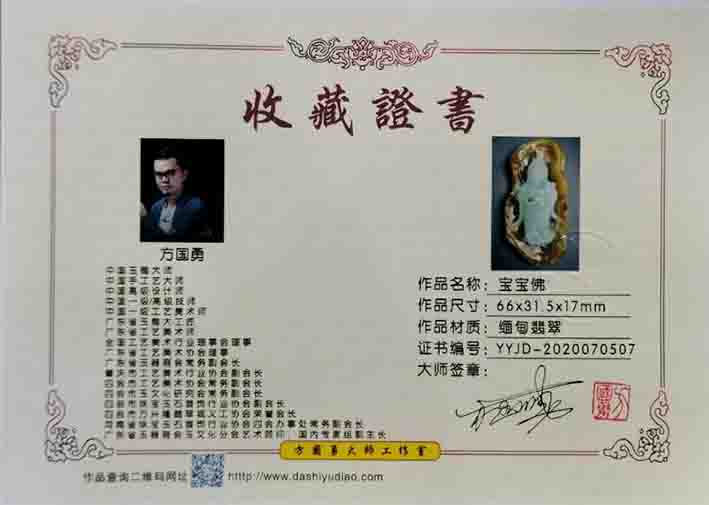 收藏證書
方国勇
中国玉雕大师
中国手工艺大师
中国高级设计师
中国一级/高级技师
中国一级工艺美术师
广东省玉雕大工匠
广东省工艺美术师
全国工艺美术行业理事会理事
广东省工艺美术协会理事
广东省玉器商会常务副会长
肇庆市工艺美术行业协会副会长
四会市工艺美术协会常务副会长
四会市玉文化研究会常务副会长
四会市珠宝玉石首饰行业协会副会长
四会市万兴隆翡翠城义工协会荣誉会长
河南省珠宝玉石首饰行业协会四会办事处常务副会长
广东省玉器商会玉文化分会艺术顾问、国内专家组副主长
作品名称：宝宝佛
作品尺寸：66x31.5x17mm
作品材质：缅甸翡翠
证书编号：YYJD-2020070507
大师签章：
方國勇大师工作室
作品查询二维码网址 htttp://www.dashiyudiao.com